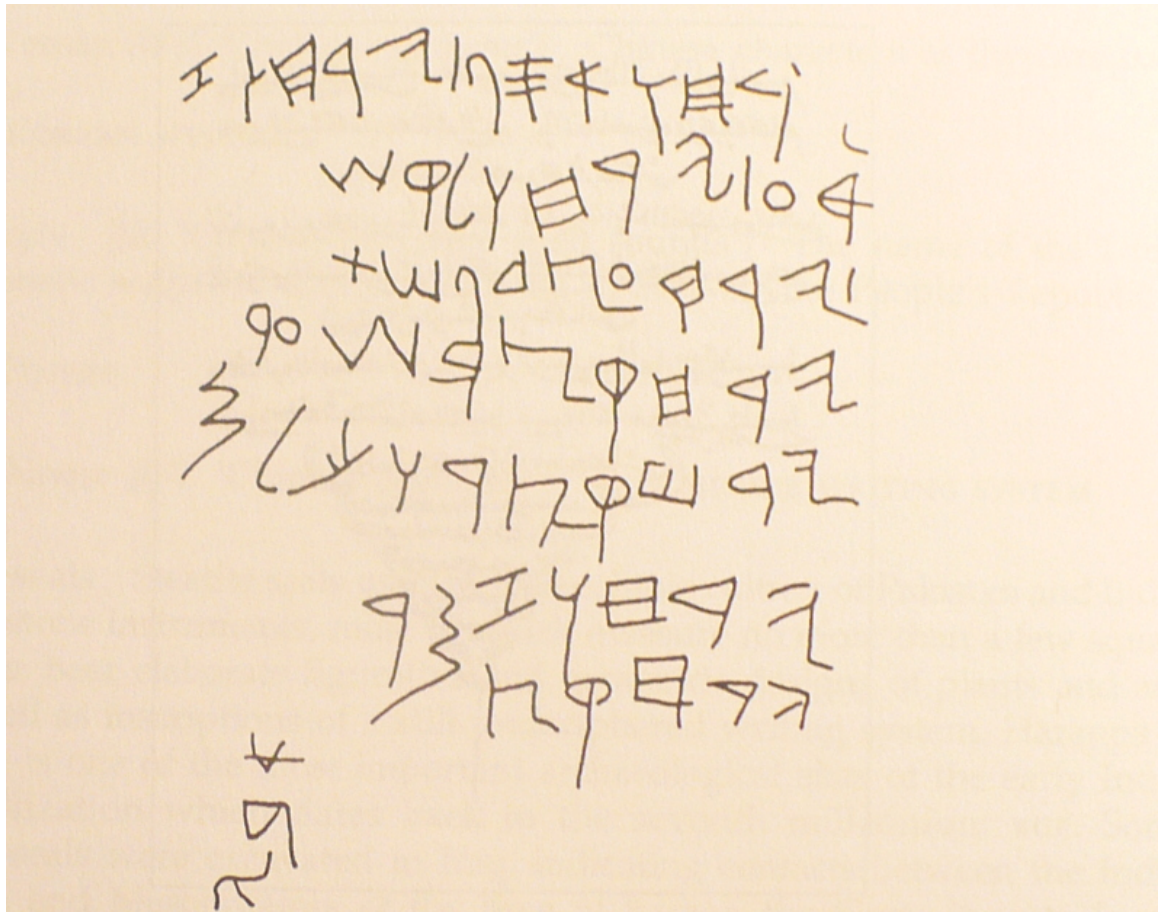 𐤉𐤓𐤇𐤅𐤀𐤎𐤐|𐤉𐤓𐤇𐤅𐤆
𐤓𐤏|𐤉𐤓𐤇𐤅𐤋𐤒𐤔
𐤉𐤓𐤇𐤏𐤑𐤃𐤐𐤔𐤕
𐤉𐤓𐤇𐤒𐤑𐤓𐤔𐤏𐤓𐤌
𐤉𐤓𐤇𐤒𐤑𐤓𐤅𐤊𐤋
𐤉𐤓𐤇𐤅𐤆𐤌𐤓
𐤉𐤓𐤇𐤒𐤑
𐤀𐤁𐤉